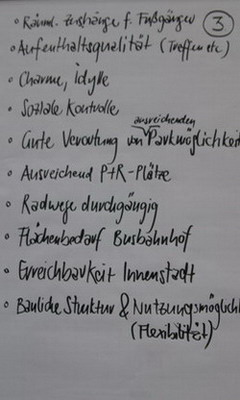 • Räuml. zushänge f. Fußgänger ③
• Aufenthaltsqualität (Treffen etc)
• Charme, idylle
• Soziale Kontrolle
ausreichenden
• Gute Verortung von Parkmöglichkeit
• Ausreichend P+R-Plätze
• Radwege durchgängig
• Flächenbedarf Busbahnhof
• Erreichbarkeit Innenstadt
• Bauliche Struktur & Nutzungsmöglich
(Flexibilität)